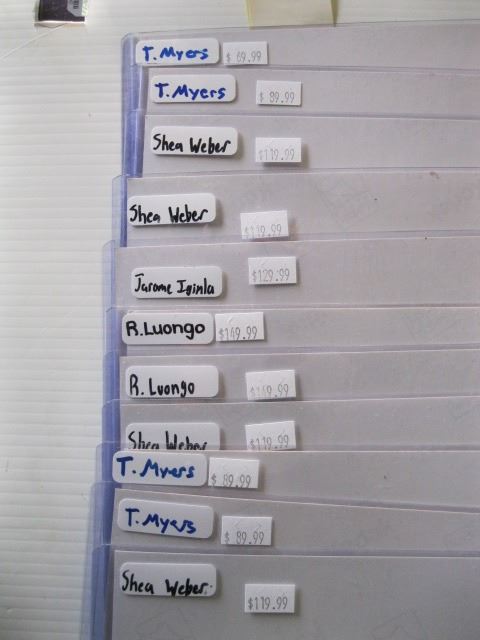 T. Myers $ 69.99
T. Myers $ 89.99
Shea Weber $119.99
Shea Weber $119.99
Jarome Iginla $129.99
R. Luongo $149.99
R. Luongo $149.99
Shea Weber $119.99
T. Myers $ 89.99
T. Myers $ 89.99
Shea Weber $119.99